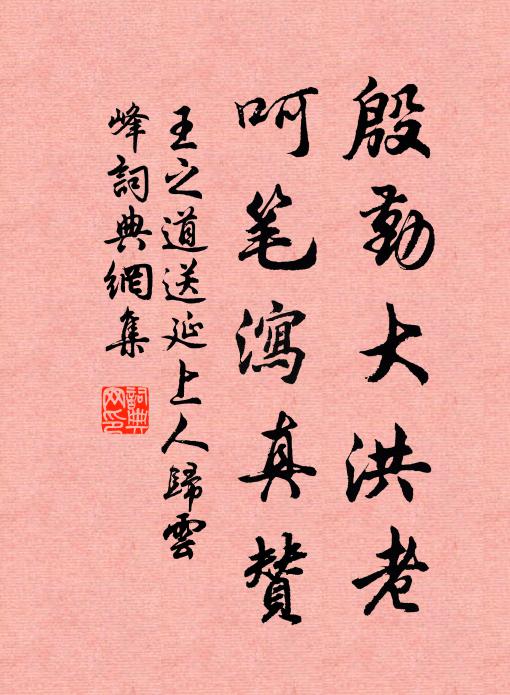 殷勤大洪老
呵笔瀉真贊
王之道送延上人歸雲
峰詞典網集
詞典
网印